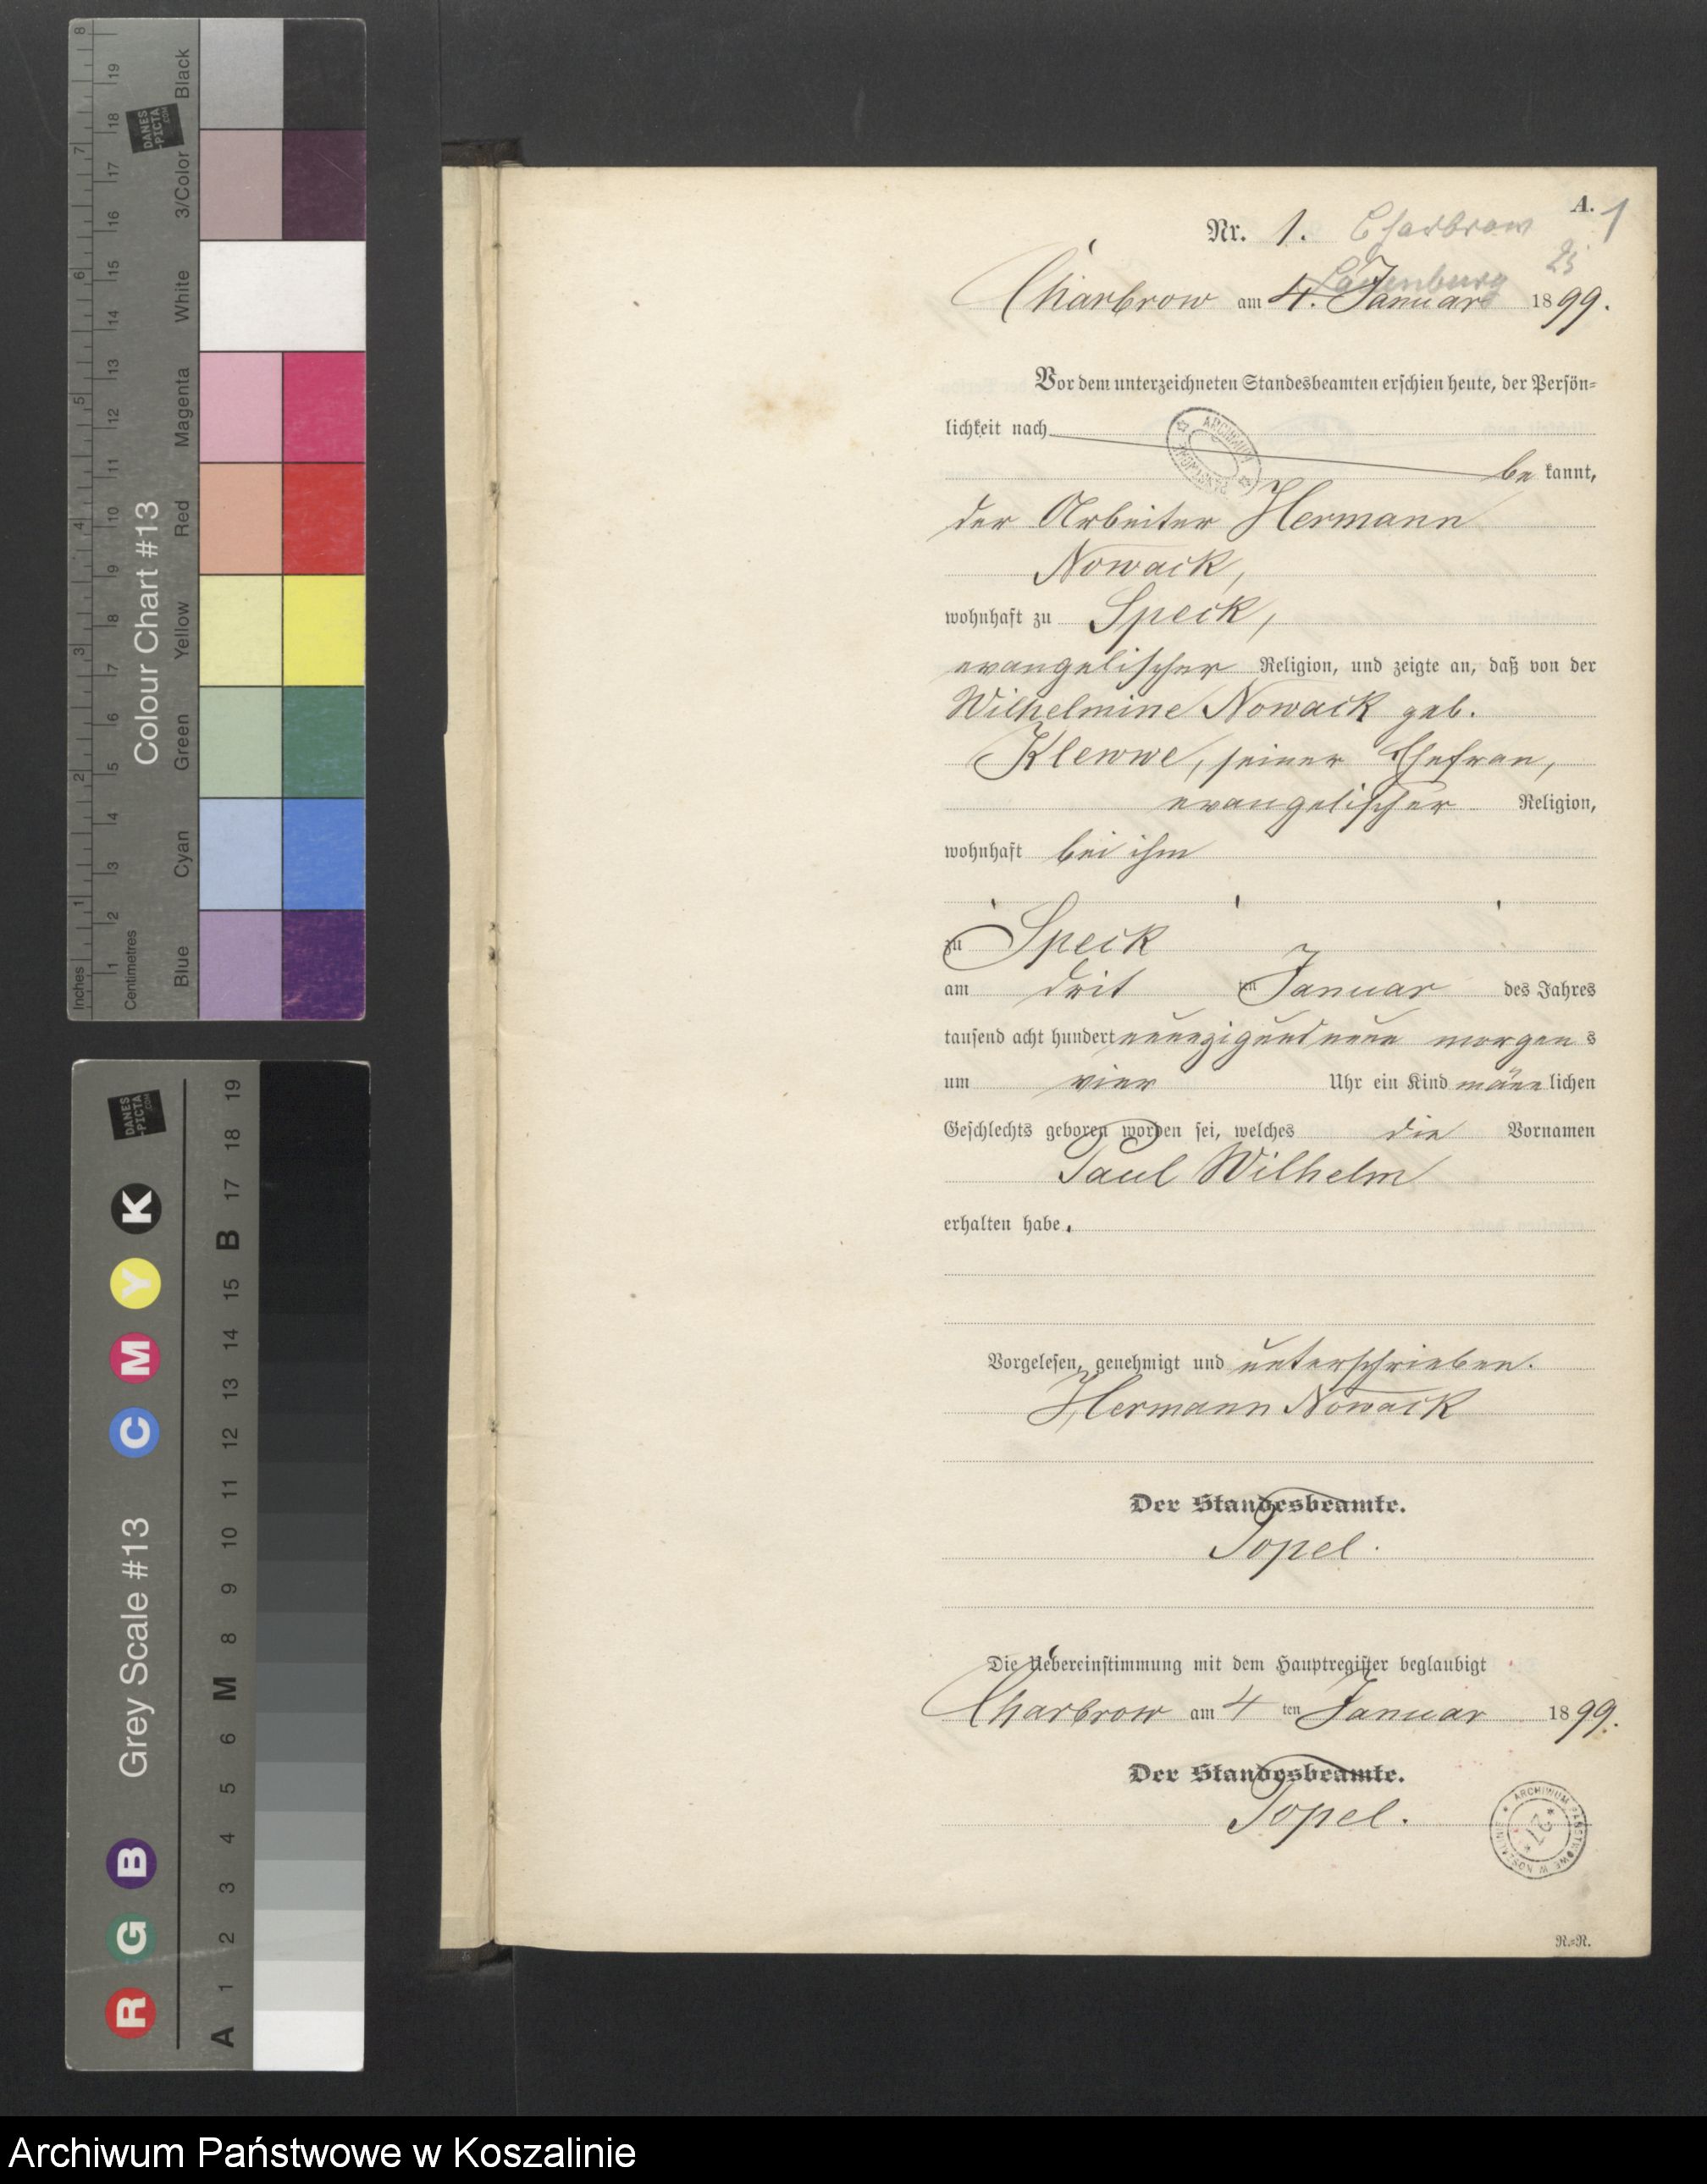 A. 1
Nr. 1. Charbrow
25
Lauenburg
Charbrow am 4. Januar 1899.
Vor dem unterzeichneten Standesbeamten erschien heute, der Persön=
lichkeit nach
be kannt,
der Arbeiter Hermann
Nowack,
wohnhaft zu Speck,
evangelischer Religion, und zeigte an, daß von der
Wilhelmine Nowack geb.
Klewwe, seiner Ehefrau,
evangelischer Religion,
wohnhaft bei ihm
zu Speck
am drit ten Januar des Jahres
tausend acht hundert neunzigundneun morgen s
um vier Uhr ein Kind männ lichen
Geschlechts geboren worden sei, welches die Vornamen
Paul Wilhelm
erhalten habe.
Vorgelesen, genehmigt und unterschrieben.
Hermann Nowack
Der Standesbeamte.
Topel.
Die Uebereinstimmung mit dem Hauptregister beglaubigt
Charbrow am 4 ten Januar 1899.
Der Standesbeamte.
Topel.
ARCHIWUM PAŃSTWOWE W KOSZALINIE
27
R.=R.
Inches
Centimetres
Colour Chart #13
Blue
Cyan
Green
Yellow
Red
Magenta
White
3/Color
Black
DANES
-PICTA
.COM
1 2 3 4 5 6 7 8
1 2 3 4 5 6 7 8 9 10 11 12 13 14 15 16 17 18 19
Grey Scale #13
R G B C M Y K
DANES
-PICTA
.COM
A 1 2 3 4 5 6 M 8 9 10 11 12 13 14 15 B 17 18 19
Archiwum Państwowe w Koszalinie